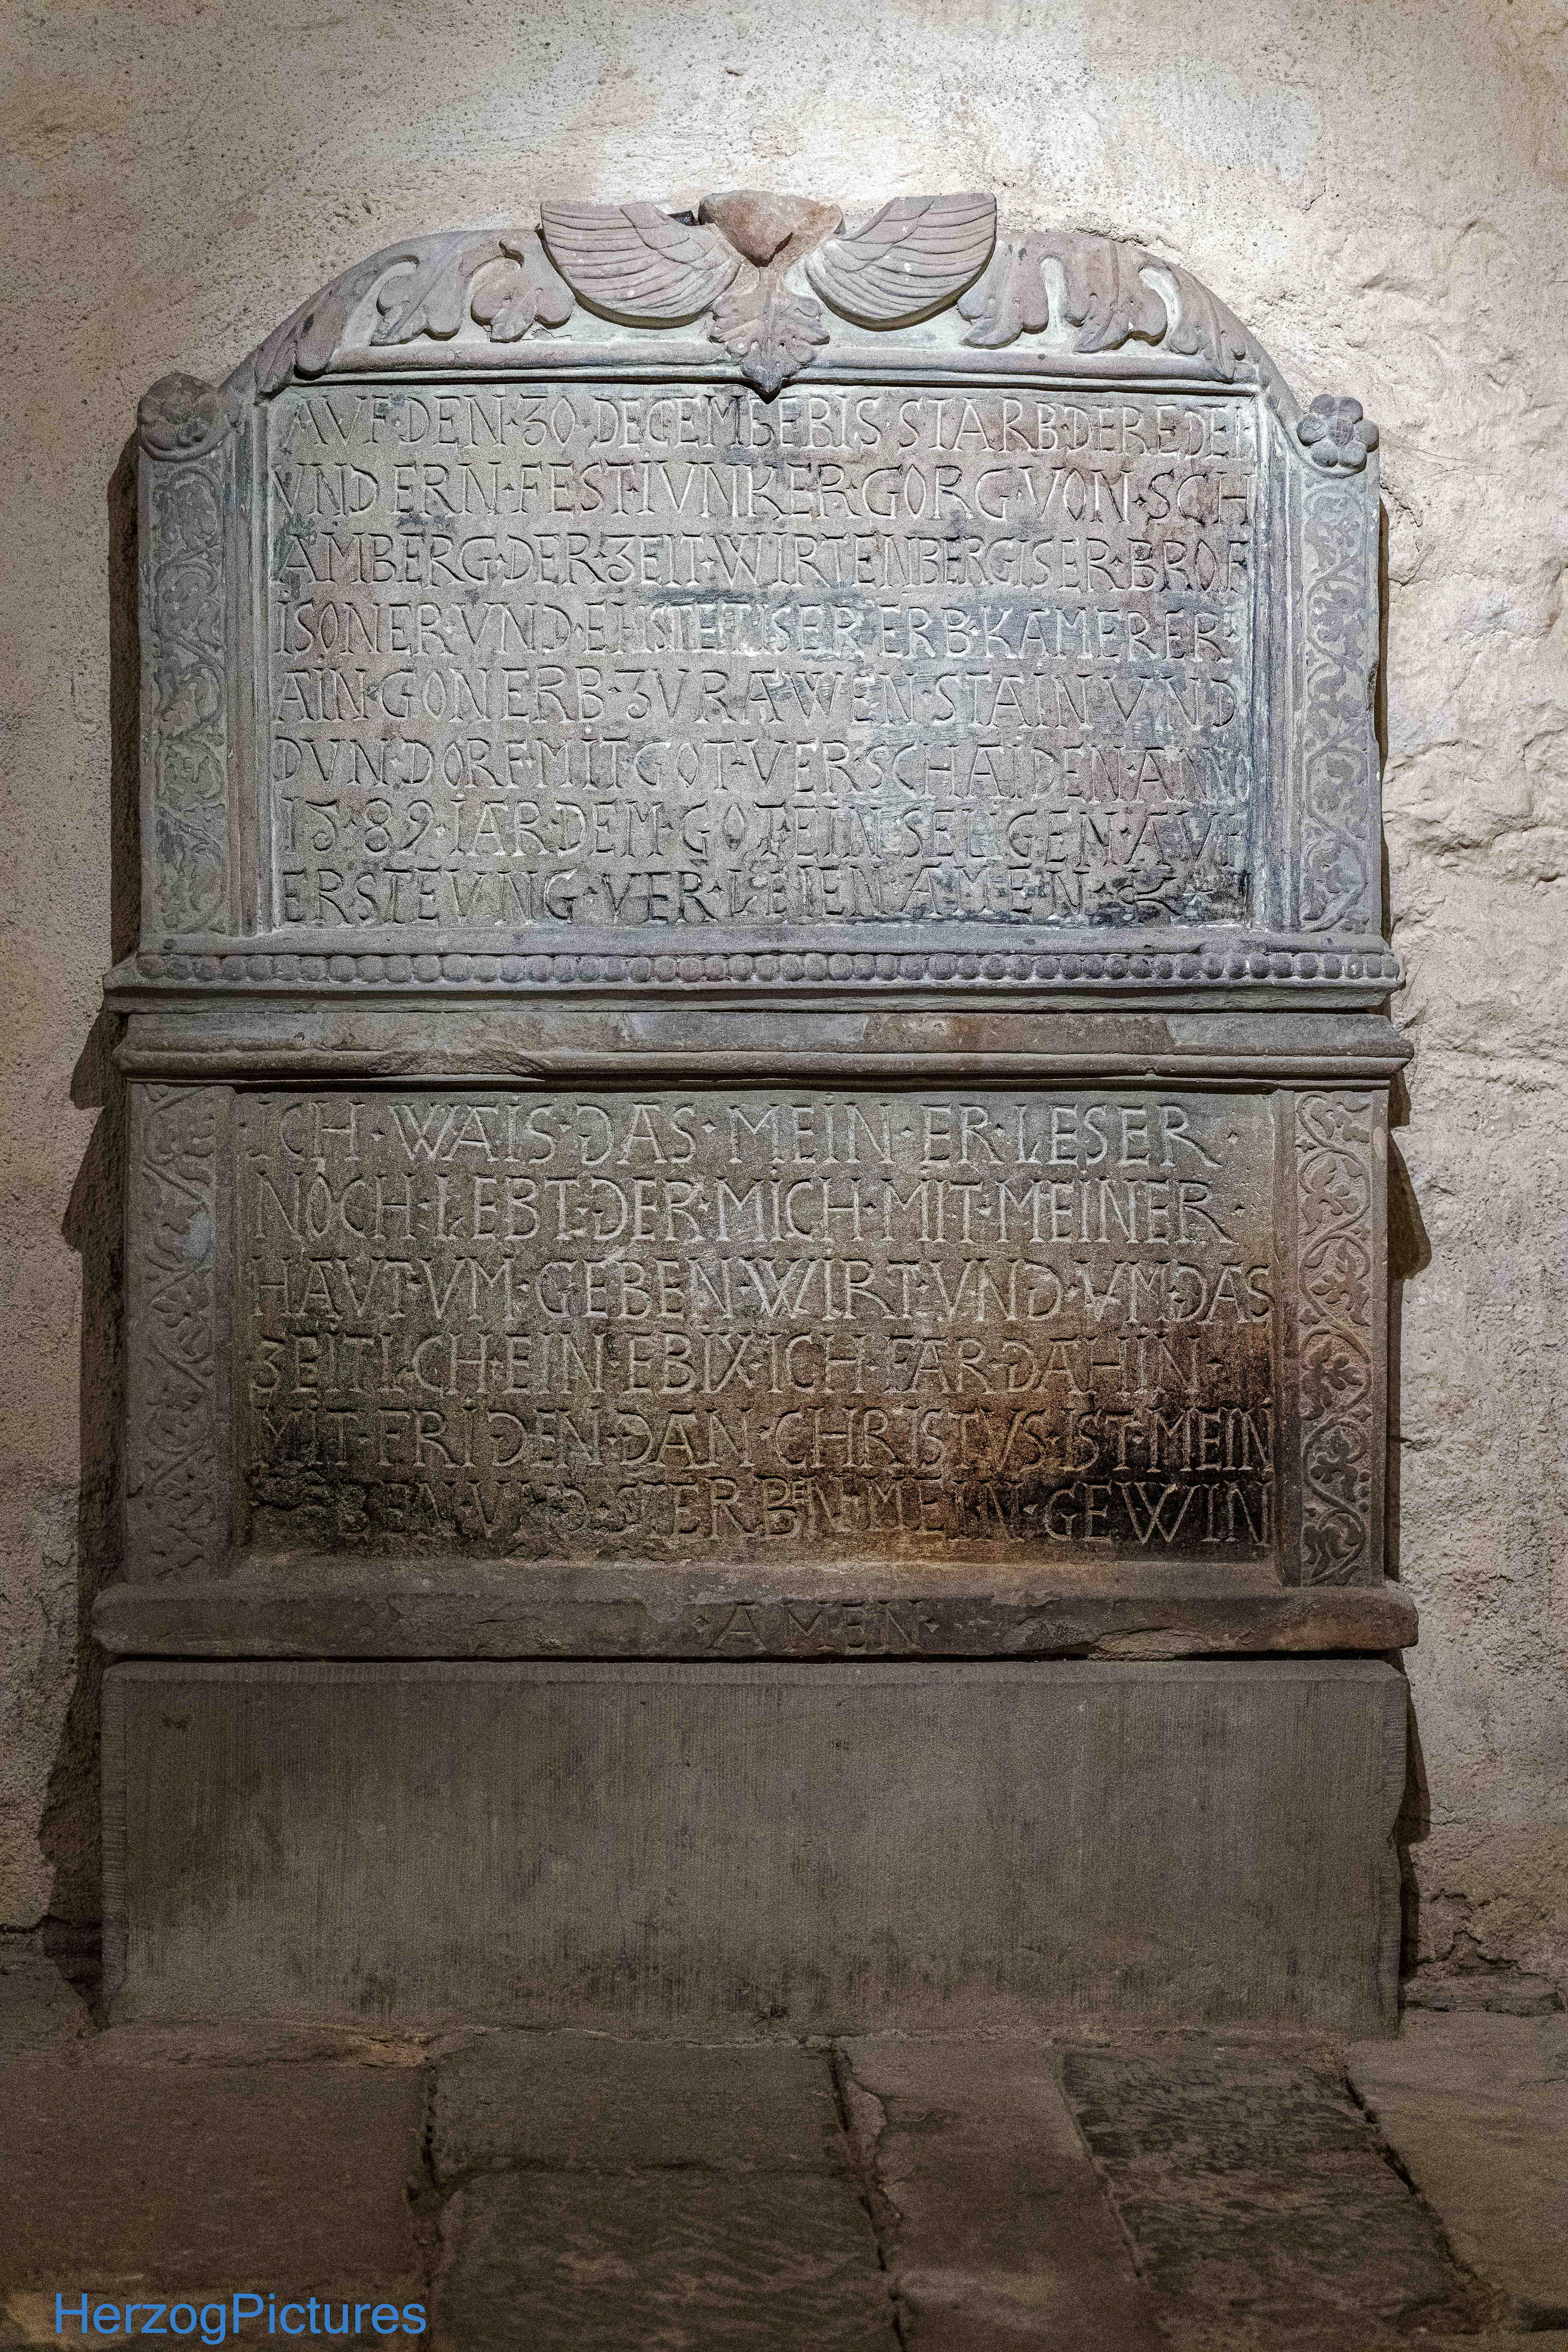 AVF·DEN·30·DECEMBERIS STARB·DER·EDEL
VND ERN·FEST·IVNKER·GORG·VON·SCH
AMBERG·DER·ZEIT·WIRTENBERGISER·BROF
ISONER·VND·EHSTETISER·ERB·KAMERER·
AIN·GONERB·ZV RAWEN·STAIN VND
DVNDORF·MIT·GOT·VERSCHAIDEN·ANNO
15·89·IAR·DEM·GOT·EIN·SELIGEN·AVF
ERSTEVNG·VERLEIEN·AMEN·
·ICH·WAIS·DAS·MEIN·ERLESER·
NOCH·LEBT·DER·MICH·MIT·MEINER·
HAVT·VM·GEBEN·WIRT·VND·VM·DAS
ZEITLICH·EIN·EBIX·ICH·FAR·DAHIN·
MIT·FRIDEN·DAN·CHRISTVS·IST·MEIN
LEBEN·VND·STERBEN·MEIN·GEWIN
·AMEN·
HerzogPictures